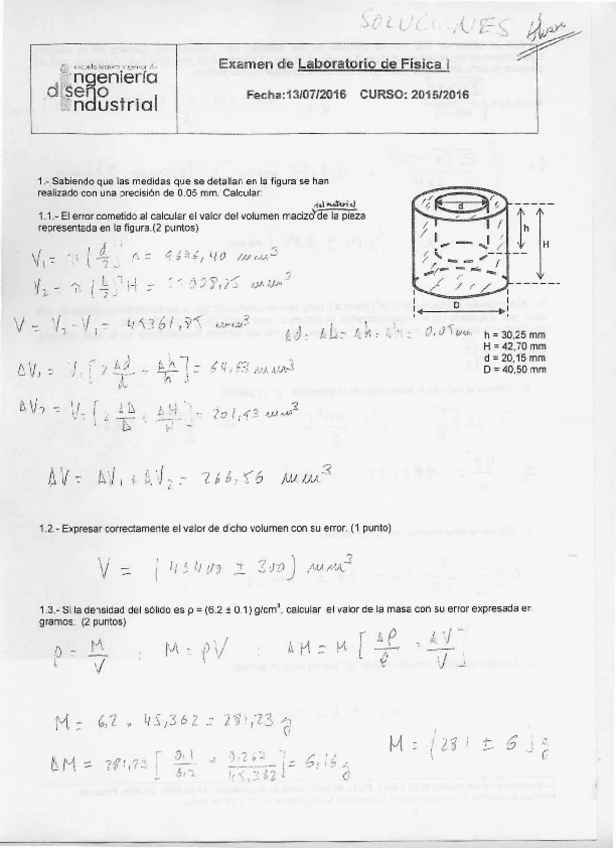 SOLUCIONES
ingeniería
diseño
industrial
Examen de Laboratorio de Física I
Fecha:13/07/2016 CURSO: 2015/2016
1.- Sabiendo que las medidas que se detallan en la figura se han
realizado con una precisión de 0.05 mm. Calcular:
del material
1.1.- El error cometido al calcular el valor del volumen macizo de la pieza
representada en la figura.(2 puntos)
d
h
H
D
V₁ = π (d/2)² h = 9646,40 mm³
V₂ = π (D/2)² H = mm³
V = V₂ - V₁ = 45361,85 mm³
Δd = ΔD = Δh = ΔH = 0,05 mm
h = 30,25 mm
H = 42,70 mm
d = 20,15 mm
D = 40,50 mm
ΔV₁ = V₁ [2 Δd/d + Δh/h] = mm³
ΔV₂ = V₂ [2 ΔD/D + ΔH/H] = 201,53 mm³
ΔV = ΔV₁ + ΔV₂ = 266,56 mm³
1.2.- Expresar correctamente el valor de dicho volumen con su error. (1 punto)
V = (45400 ± 300) mm³
1.3.- Si la densidad del sólido es ρ = (6.2 ± 0.1) g/cm³, calcular el valor de la masa con su error expresada en
gramos. (2 puntos)
ρ = M/V ; M = ρV ; ΔM = M [Δρ/ρ + ΔV/V]
M = 6,2 × 45,362 = 281,23 g
ΔM = 281,23 [0,1/6,2 + 0,267/45,362] = 6,16 g
M = (281 ± 6) g